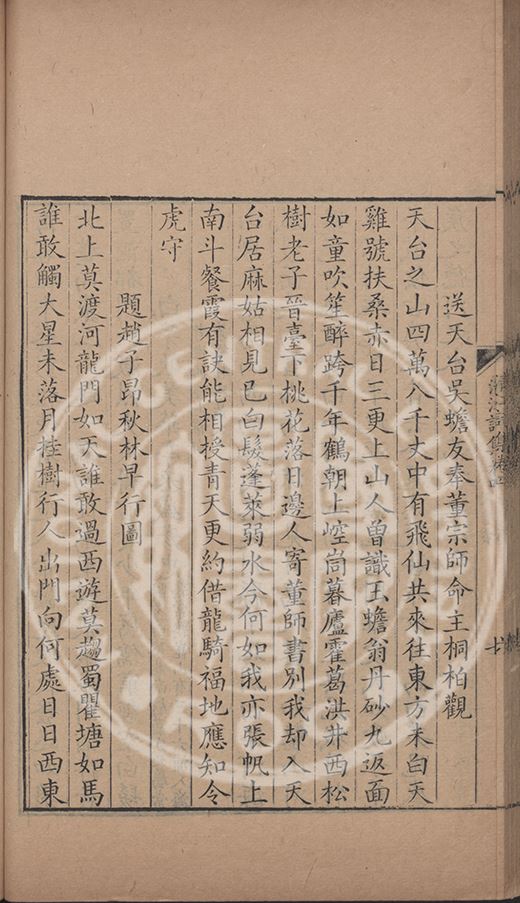 送天台吳蟾友奉董宗師命主桐柏觀
天台之山四萬八千丈中有飛仙共來往東方未白天
雞號扶桑赤日三更上山人曾識玉蟾翁丹砂九返面
如童吹笙醉跨千年鶴朝上崆峒暮廬霍葛洪井西松
樹老子晉臺下桃花落日邊人寄董師書別我却入天
台居麻姑相見已白髮蓬萊弱水今何如我亦張帆上
南斗餐霞有訣能相授青天更約借龍騎福地應知令
虎守
題趙子昂秋林早行圖
北上莫渡河龍門如天誰敢過西遊莫趨蜀瞿塘如馬
誰敢觸大星未落月挂樹行人出門向何處日日西東
詩集卷四